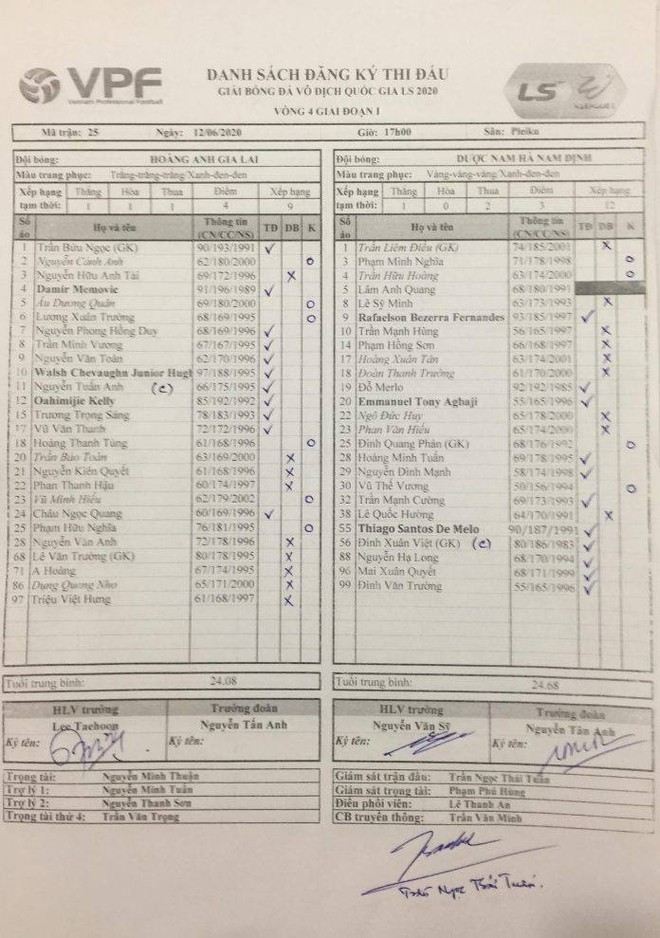 VPF
Vietnam Professional Football
DANH SÁCH ĐĂNG KÝ THI ĐẤU
GIẢI BÓNG ĐÁ VÔ ĐỊCH QUỐC GIA LS 2020
VÒNG 4 GIAI ĐOẠN I
LS
Mã trận: 25 Ngày: 12/06/2020 Giờ: 17h00 Sân: Pleiku
Đội bóng: HOÀNG ANH GIA LAI
Màu trang phục: Trắng-trắng-trắng/Xanh-đen-đen
Xếp hạng tạm thời: Thắng Hòa Thua Điểm Xếp hạng
1 1 1 4 9
Số áo Họ và tên Thông tin (CN/CC/NS) TĐ DB K
1 Trần Bửu Ngọc (GK) 90/193/1991 ✓
2 Nguyễn Cảnh Anh 62/180/2000 o
3 Nguyễn Hữu Anh Tài 69/172/1996 x
4 Damir Memovic 91/196/1989 ✓
5 Âu Dương Quân 69/180/2000 o
6 Lương Xuân Trường 68/169/1995 o
7 Nguyễn Phong Hồng Duy 68/169/1996 ✓
8 Trần Minh Vương 67/167/1995 ✓
9 Nguyễn Văn Toàn 62/170/1996 ✓
10 Walsh Chevaughn Junior Hugh 97/188/1995 ✓
11 Nguyễn Tuấn Anh (c) 66/175/1995 ✓
12 Oahimijie Kelly 85/192/1992 ✓
15 Trương Trọng Sáng 78/183/1993 ✓
17 Vũ Văn Thanh 72/172/1996 ✓
18 Hoàng Thanh Tùng 61/168/1996 o
20 Trần Bảo Toàn 63/169/2000 x
21 Nguyễn Kiên Quyết 61/168/1996 x
22 Phan Thanh Hậu 60/174/1997 x
23 Vũ Minh Hiếu 62/179/2002 o
24 Châu Ngọc Quang 60/169/1995 ✓
25 Phạm Hữu Nghĩa 76/181/1995 o
28 Nguyễn Văn Anh 72/178/1996 x
68 Lê Văn Trường (GK) 80/178/1995 x
71 A Hoàng 67/174/1995 x
86 Dụng Quang Nho 65/171/2000 x
97 Triệu Việt Hưng 61/168/1997 x
Tuổi trung bình: 24.08
HLV trưởng Trưởng đoàn
Lee Taehoon Nguyễn Tấn Anh
Ký tên: Ký tên:
Trọng tài: Nguyễn Minh Thuận
Trợ lý 1: Nguyễn Minh Tuấn
Trợ lý 2: Nguyễn Thanh Sơn
Trọng tài thứ 4: Trần Văn Trọng
Đội bóng: DƯỢC NAM HÀ NAM ĐỊNH
Màu trang phục: Vàng-vàng-vàng/Xanh-đen-đen
Xếp hạng tạm thời: Thắng Hòa Thua Điểm Xếp hạng
1 0 2 3 12
Số áo Họ và tên Thông tin (CN/CC/NS) TĐ DB K
1 Trần Liêm Điều (GK) 74/185/2001 x
3 Phạm Minh Nghĩa 71/178/1998 o
4 Trần Hữu Hoàng 63/174/2000 o
5 Lâm Anh Quang 68/180/1991
8 Lê Sỹ Minh 63/173/1993 x
9 Rafaelson Bezerra Fernandes 93/185/1997 ✓
10 Trần Mạnh Hùng 56/165/1997 x
14 Phạm Hồng Sơn 66/168/1997 x
17 Hoàng Xuân Tân 63/174/2001 x
18 Đoàn Thanh Trường 61/170/2000 x
19 Đỗ Merlo 92/192/1985 ✓
20 Emmanuel Tony Agbaji 55/165/1996 ✓
22 Ngô Đức Huy 65/178/2000 x
23 Phan Văn Hiếu 65/174/2000 x
25 Đinh Quang Phán (GK) 68/176/1992 o
28 Hoàng Minh Tuấn 69/178/1995 ✓
29 Nguyễn Đình Mạnh 58/174/1998 ✓
30 Vũ Thế Vương 50/156/1994 o
32 Trần Mạnh Cường 69/173/1993 ✓
38 Lê Quốc Hường 64/170/1991 x
55 Thiago Santos De Melo 90/187/1991 ✓
56 Đinh Xuân Việt (GK) (c) 80/186/1983 ✓
88 Nguyễn Hạ Long 68/170/1994 ✓
96 Mai Xuân Quyết 68/171/1999 ✓
99 Đinh Văn Trường 55/165/1996 ✓
Tuổi trung bình: 24.68
HLV trưởng Trưởng đoàn
Nguyễn Văn Sỹ Nguyễn Tấn Anh
Ký tên: Ký tên:
Giám sát trận đấu: Trần Ngọc Thái Tuấn
Giám sát trọng tài: Phạm Phú Hùng
Điều phối viên: Lê Thanh An
CB truyền thông: Trần Văn Minh
Trần Ngọc Thái Tuấn.